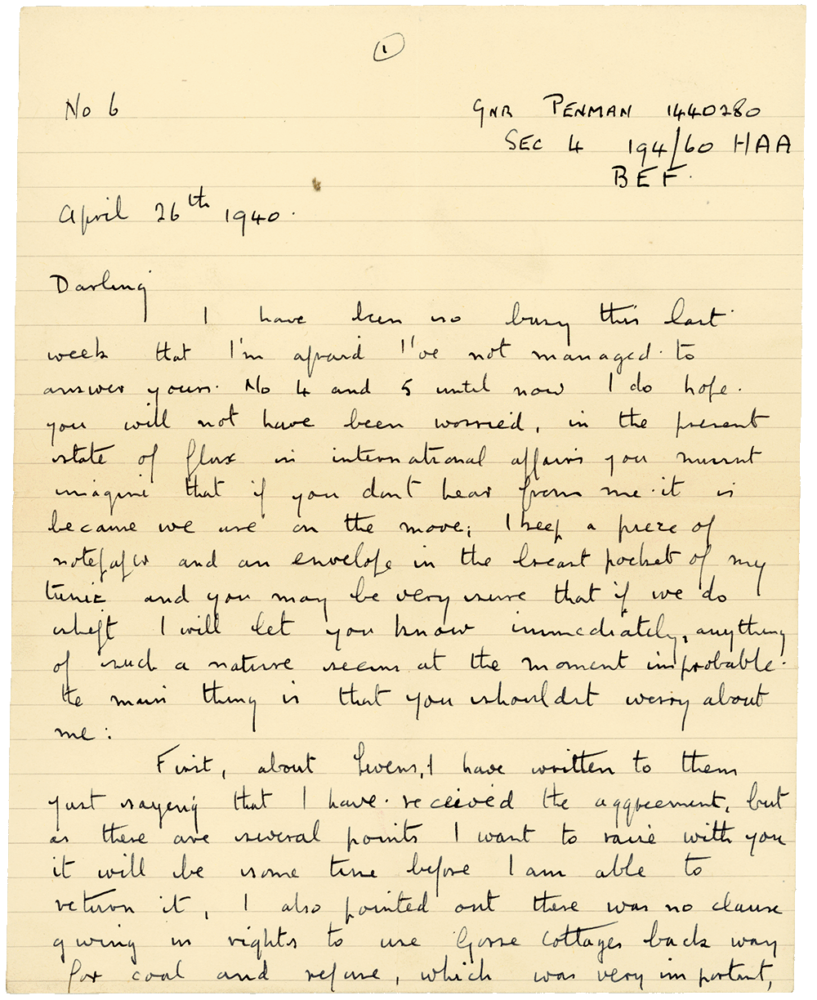 1
No 6
GNR PENMAN 1440280
SEC 4 194/60 HAA
BEF.
April 26th 1940.
Darling
I have been so busy this last
week that I'm afraid I've not managed to
answer yours. No 4 and 5 until now I do hope.
you will not have been worried, in the present
state of flux in international affairs you musnt
imagine that if you dont hear from me it is
because we are on the move; I keep a piece of
notepaper and an envelope in the breast pocket of my
tunic and you may be very sure that if we do
shift I will let you know immediately, anything
of such a nature seems at the moment improbable.
the main thing is that you shouldnt worry about
me:
First, about I have written to them
just saying that I have received the aggreement, but
as there are several points I want to raise with you
it will be some time before I am able to
return it, I also pointed out there was no clause
giving us rights to use Gorse Cottages back way
for coal and refuse, which was very important,